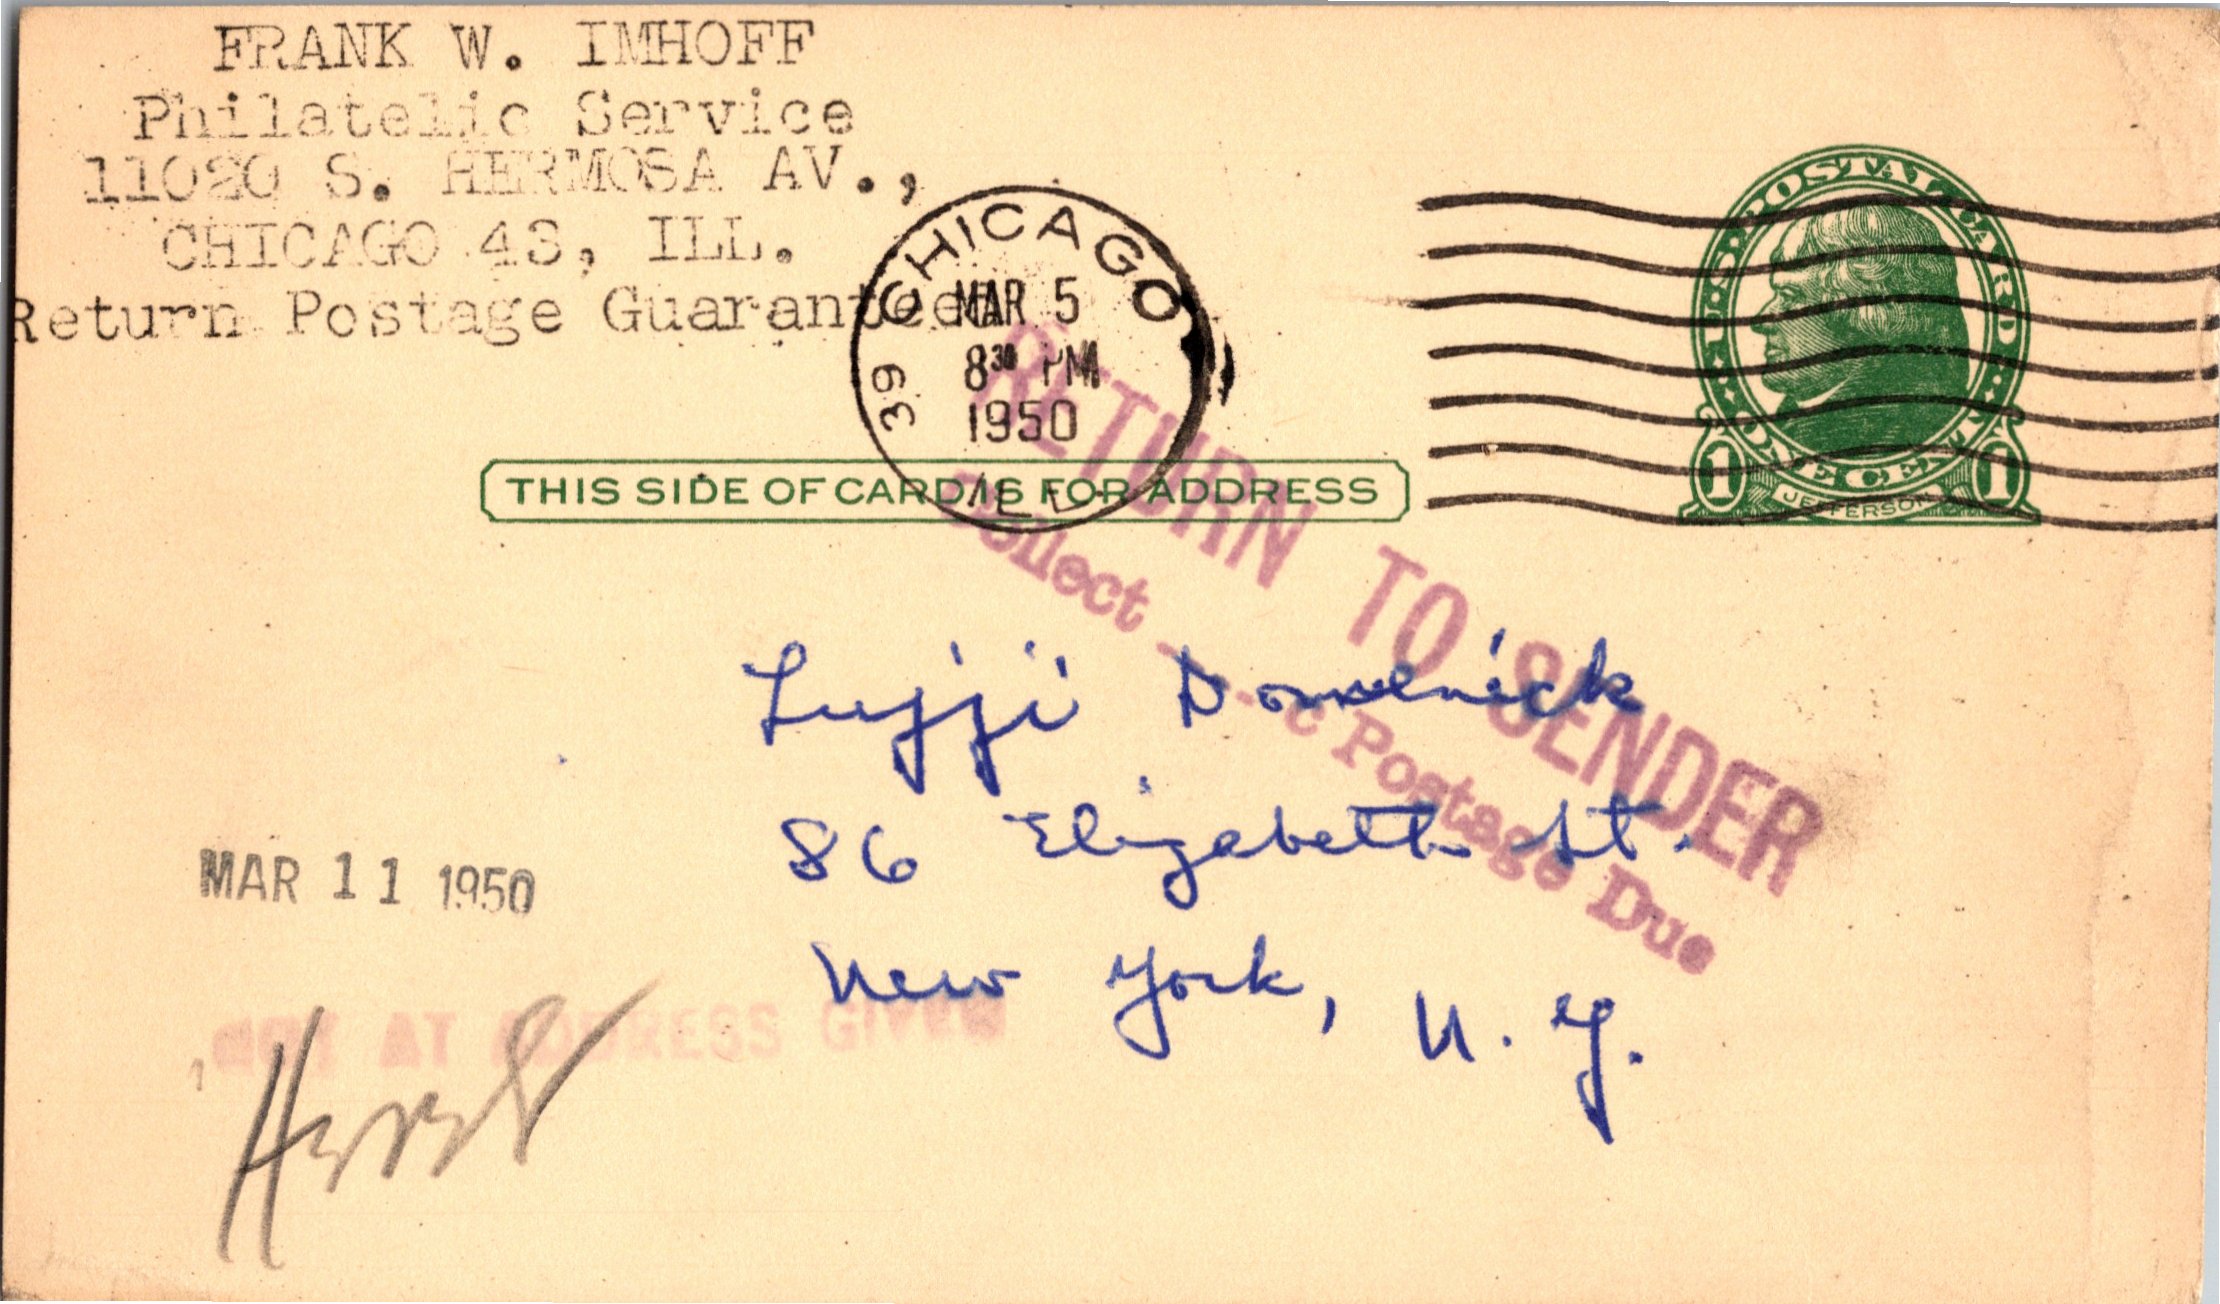 FRANK W. IMHOFF
Philatelic Service
11020 S. HERMOSA AV.,
CHICAGO 43, ILL.
Return Postage Guaranteed
CHICAGO
39
MAR 5
8 30 PM
1950
ILL.
U.S. POSTAL CARD
1 ONE CENT 1
JEFFERSON
THIS SIDE OF CARD IS FOR ADDRESS
RETURN TO SENDER
Collect c Postage Due
Lujji Domenick
86 Elizabeth St.
New York, N. Y.
MAR 11 1950
NOT AT ADDRESS GIVEN